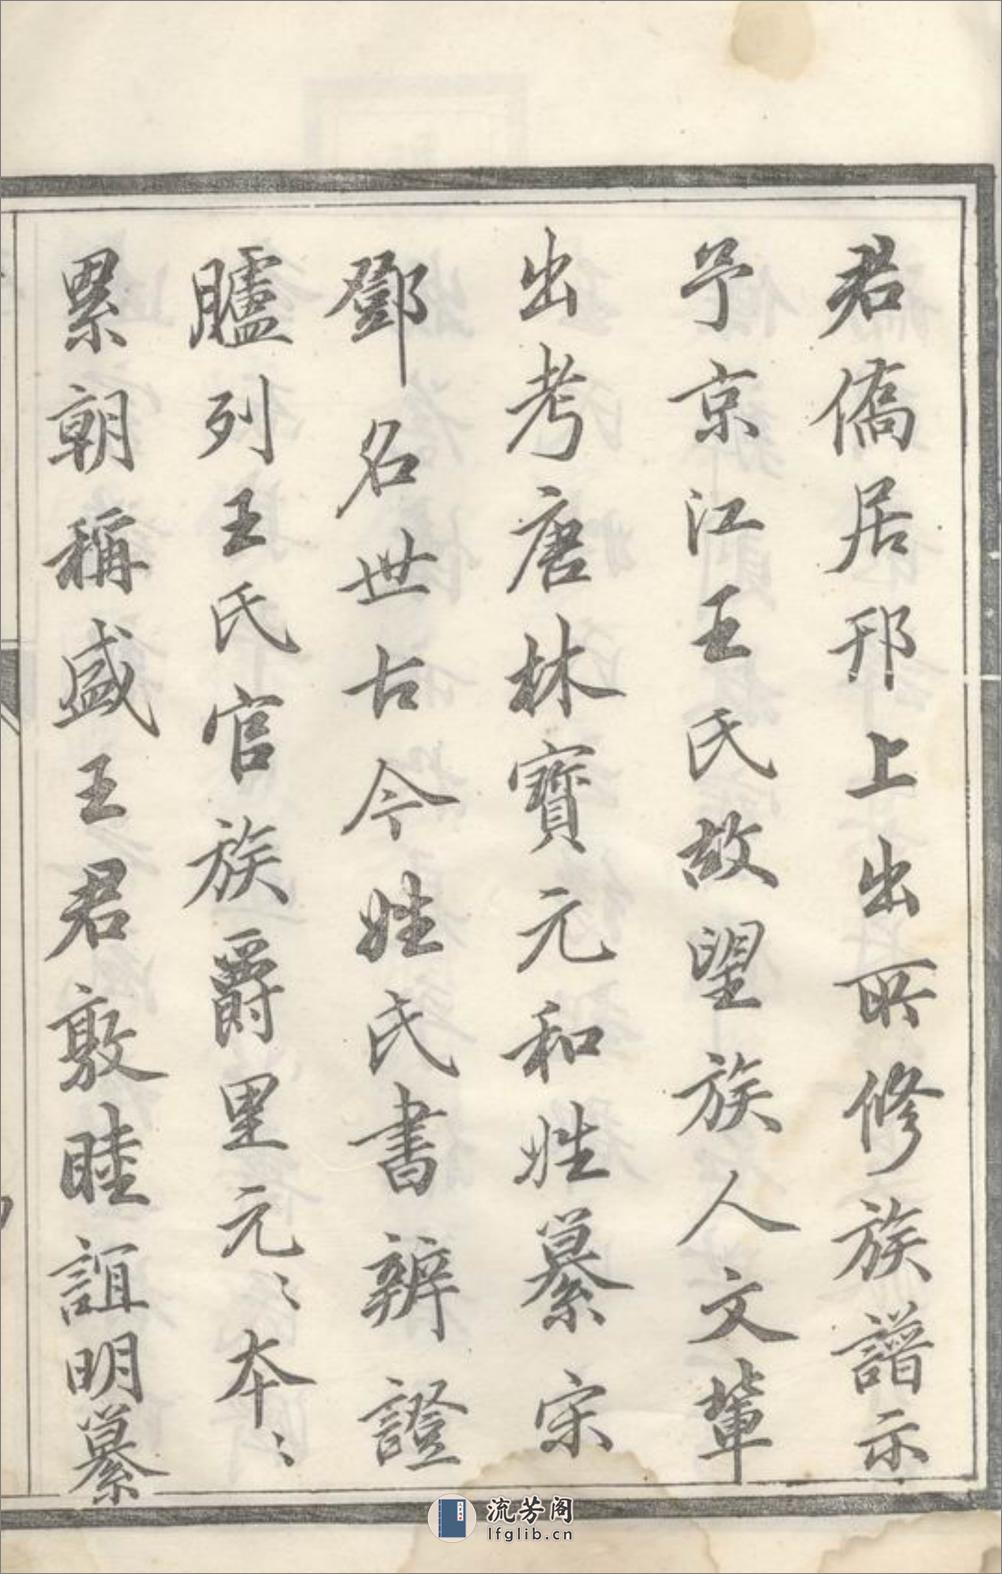 君僑居邗上出所修族譜示
予京江王氏故望族人文輩
出考唐林寶元和姓纂宋
鄧名世古今姓氏書辨證
臚列王氏官族爵里元〻本〻
累朝稱盛王君敦睦誼明纂
流芳阁
lfglib.cn